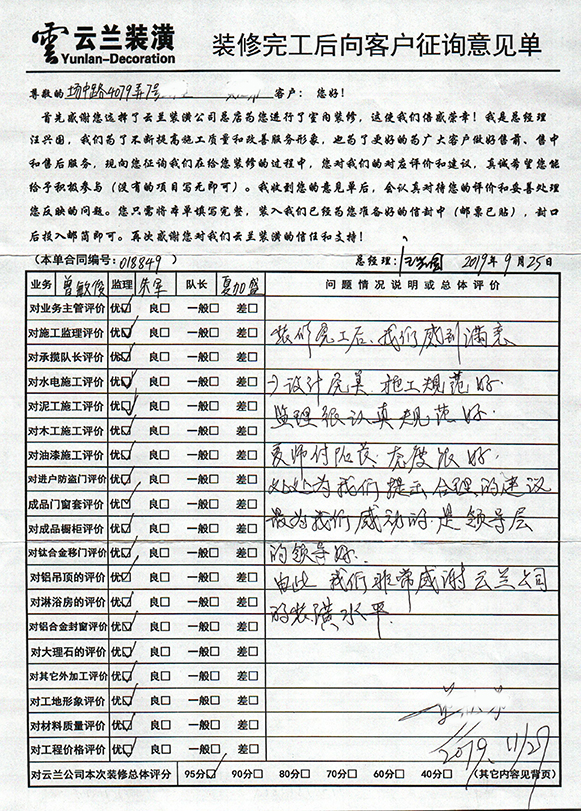 雲 云兰装潢
Yunlan-Decoration
装修完工后向客户征询意见单
尊敬的 场中路4079弄7号 客户： 您好！
首先感谢您选择了云兰装潢公司总店为您进行了室内装修，这使我们倍感荣幸！我是总经理
汪兴国，我们为了不断提高施工质量和改善服务形象，也为了更好的为广大客户做好售前、售中
和售后服务，现向您征询我们在给您装修的过程中，您对我们的对应评价和建议，真诚希望您能
给予积极参与（没有的项目写无即可）。我收到您的意见单后，会认真对待您的评价和妥善处理
您反映的问题。您只需将本单填写完整，装入我们已经为您准备好的信封中（邮票已贴），封口
后投入邮筒即可。再次感谢您对我们云兰装潢的信任和支持！
(本单合同编号：018849 ) 总经理： 2019年9月25日
业务 曾敏俊 监理 朱军 队长 夏加盛 问题情况说明或总体评价
对业务主管评价 优☑ 良□ 一般□ 差□
对施工监理评价 优☑ 良□ 一般□ 差□ 装修完工后、我们感到满意
对承揽队长评价 优☑ 良□ 一般□ 差□
对水电施工评价 优☑ 良□ 一般□ 差□ 设计完美、施工规范好.
对泥工施工评价 优☑ 良□ 一般□ 差□ 监理很认真规范好.
对木工施工评价 优☑ 良□ 一般□ 差□
对油漆施工评价 优☑ 良□ 一般□ 差□ 夏师付 态度很好.
对进户防盗门评价 优☑ 良□ 一般□ 差□ 处处为我们提示合理的建议
成品门窗套评价 优☑ 良□ 一般□ 差□
对成品橱柜评价 优☑ 良□ 一般□ 差□ 最为我们感动的.是领导层
对钛合金移门评价 优☑ 良□ 一般□ 差□ 的领导好.
对铝吊顶的评价 优☑ 良□ 一般□ 差□ 由此 我们非常感谢云兰公司
对淋浴房的评价 优☑ 良□ 一般□ 差□ 的装潢水平.
对铝合金封窗评价 优☑ 良□ 一般□ 差□
对大理石的评价 优☑ 良□ 一般□ 差□
对其它外加工评价 优☑ 良□ 一般□ 差□
对工地形象评价 优☑ 良□ 一般□ 差□
对材料质量评价 优☑ 良□ 一般□ 差□
对工程价格评价 优☑ 良□ 一般□ 差□ 2019.11/27
对云兰公司本次装修总体评分 95分☑ 90分□ 80分□ 70分□ 60分□ 40分□ (其它内容见背页)